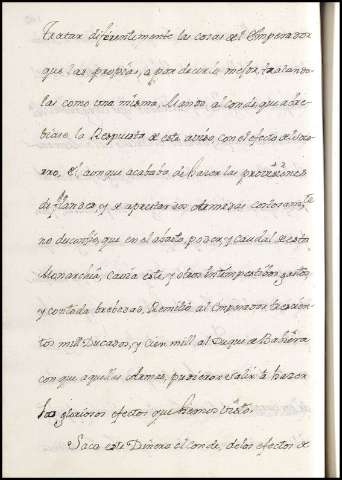 tratar diferentemente las cosas del Emperador
que las propias, o por decirlo mejor, tratando-
las como una misma, Mando, al Conde, que abre-
biase, la Respuesta de este aviso, con el efecto del
el, aunque acababa de hazer las provisiones
de flandes, y se aprestar dos Armadas costosamte
no desconfio, que en el abasto, poder, y caudal de esta
Monarchia, cavia este, y otros intempestibos gastos
y con toda brebedad, Remitio, al Emperador trescien-
tos mill Ducados, y Cien mill al Duque de Babiera
con que aquellas Armas, pudieron salir, a hazer
los gloriosos efectos que hemos visto.
Saco este Dinero el Conde, de los efectos de